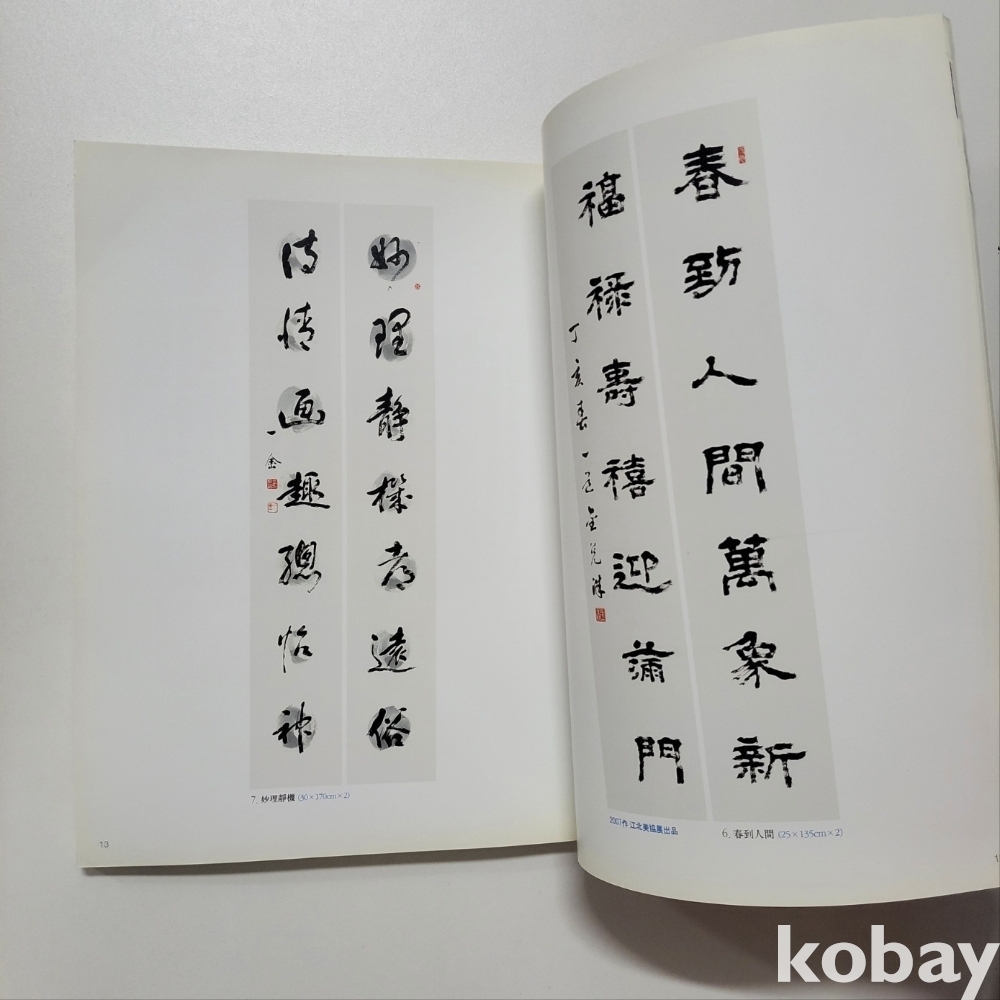 春到人間萬象新
福祿壽禧迎滿門
丁亥春 一 金
6. 春到人間 (25×135cm×2)
2007作 江北美協展出品
妙理靜機都遠俗
詩情画趣總怡神
一金
7. 妙理靜機 (30×170cm×2)
13
kobay